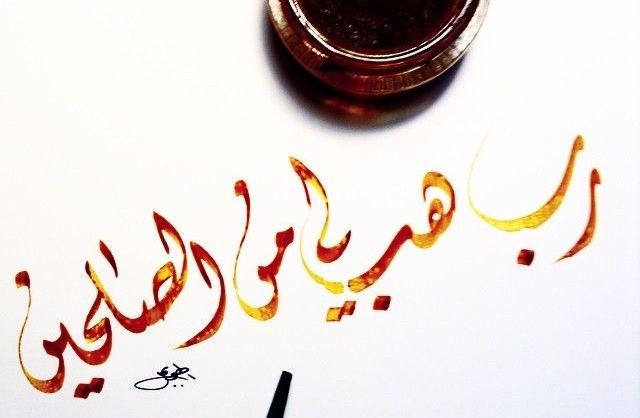 رب هب لي من الصالحين